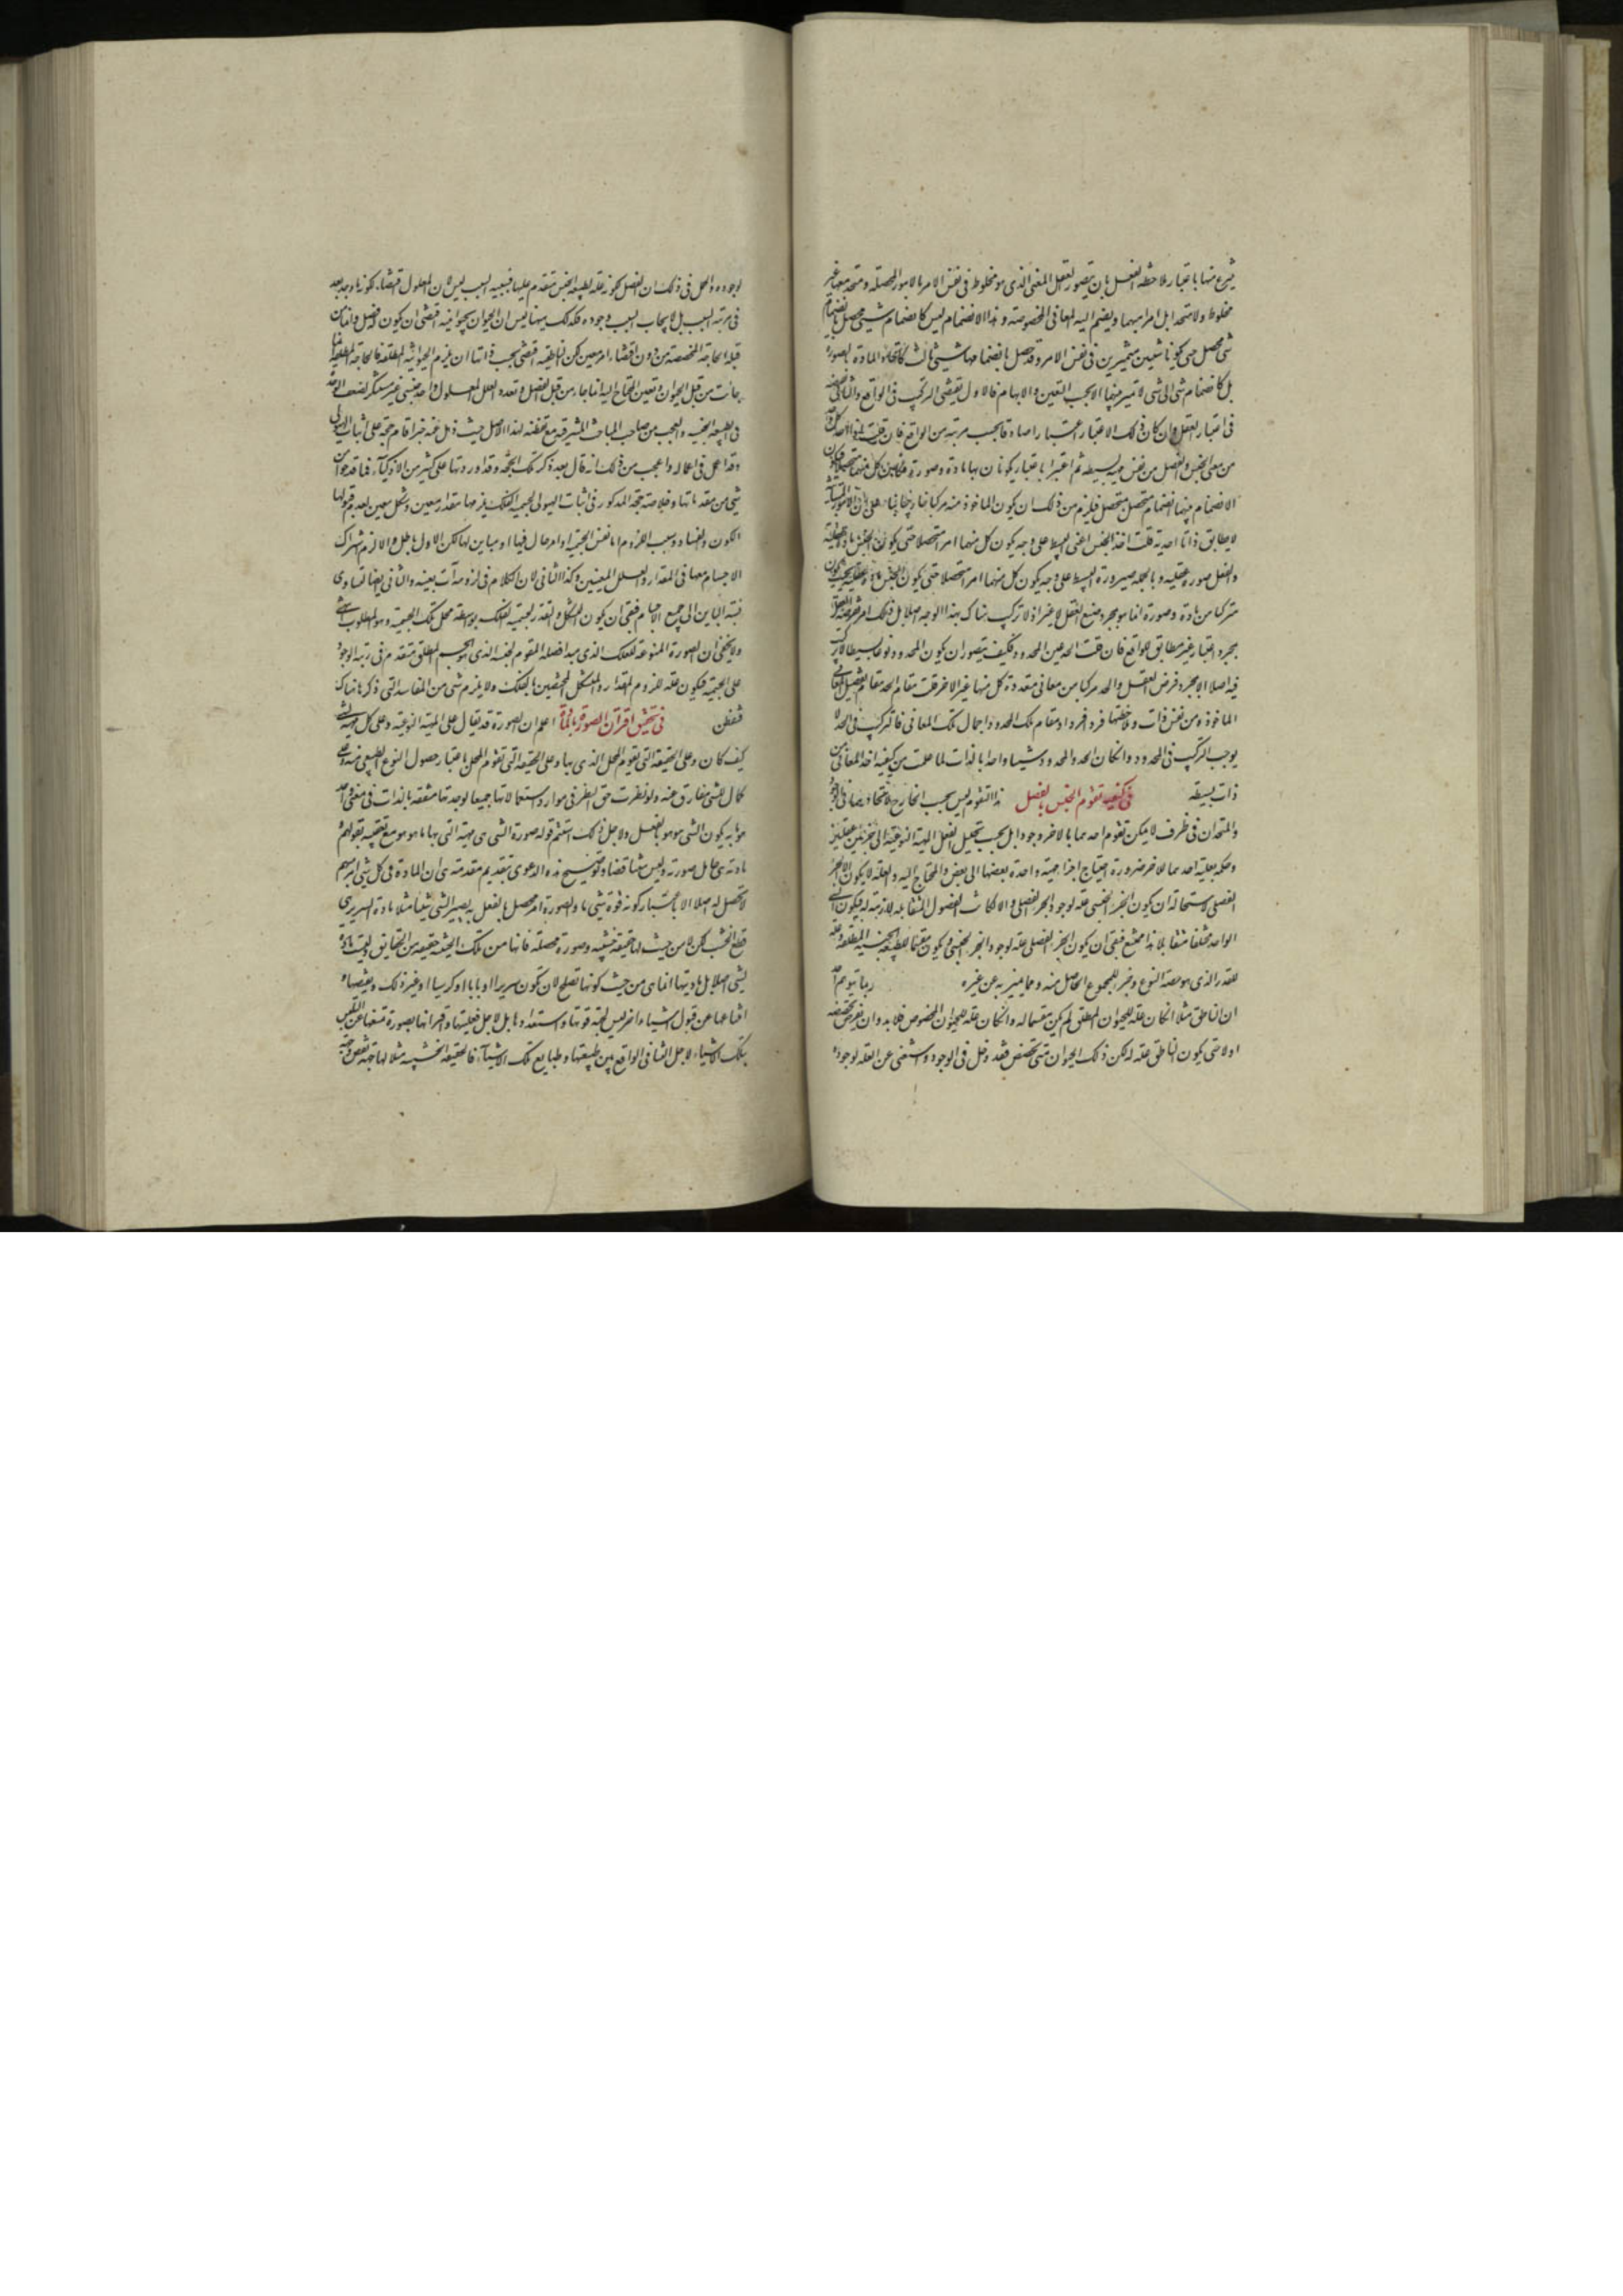 شيء منها باعتبار ملاحظة العقل بان يتصور العقل المعنى الذي هو مخلوط في نفس الامر بالامور المحصلة ومتحد معها غير
مخلوط ولا متحد بل امرا مبهما ويضم اليه المعاني المخصوصة و هذا الانضمام ليس كانضمام شيء محصل بانضمام
شيء محصل حتى يكونا شيئين متميزين في نفس الامر وقد حصل بانضمامهما شيء ثالث كاتحاد المادة بالصورة
بل كانضمام شيء الى شيء لا تميز بينهما الا بحسب التعين والابهام فالاول يقتضي التركيب في الواقع والثاني
في اعتبار العقل وان كان ذلك الاعتبار اعتبارا صادقا بحسب مرتبة من الواقع فان قلت
من معنى الجنس والفصل من نفس مهية بسيطة ثم اعتبرا باعتبار يكونان بها مادة وصورة
الانضمام بينهما انضمام متحصل بمتحصل فيلزم من ذلك ان يكون الماخوذ منه مركبا خارجيا
لا يطابق ذاتا احدية قلت اخذ الجنس والفصل البسيط على وجه يكون كل منهما امرا متحصلا حتى يكون الجنس مادة عقلية
والفصل صورة عقلية و بالجملة صيرورة البسيط على وجه يكون كل منهما امرا متحصلا حتى يكون الجنس
متركبا من مادة وصورة انما هو بمجرد صنع العقل لا غير اذ لا تركيب هناك بهذا الوجه اصلا بل ذلك امر
بمجرد اعتبار غير مطابق للواقع فان قلت الحد عين المحدود فكيف يتصور ان يكون المحدود نوعا بسيطا لا تركيب
فيه اصلا الا بمجرد فرض العقل والحد مركبا من معاني متعددة كل منها غير الاخر قلت مقام الحد مقام تفصيل المعاني
الماخوذة من نفس ذات وملاحظتها فردا فردا ومقام تلك المحدود اجمال تلك المعاني فالتركيب في الحد لا
يوجب التركيب في المحدود وان كان الحد والمحدود شيئا واحدا بالذات لما علمت من كيفية اخذ المعاني من
ذات بسيطة في كيفية تقوم الجنس بالفصل هذا التقوم ليس بحسب الخارج لاتحادهما في الوجود
والمتحدان في ظرف لا يمكن تقوم احدهما بالاخر وجودا بل بحسب تحليل العقل المهية النوعية الى جزئين عقليين
وحكمه بعلية احدهما للاخر ضرورة احتياج اجزاء مهية واحدة بعضها الى بعض والمحتاج اليه والعلة لا يكون الا الجزء
الفصلي لاستحالة ان يكون الجزء الجنسي علة لوجود الجزء الفصلي والا لكانت الفصول المتقابلة لازمة له فيكون الشيء
الواحد مختلفا متقابلا هذا ممتنع فبقي ان يكون الجزء الفصلي علة لوجود الجزء الجنسي ويكون مقسما للطبيعة الجنسية المطلقة وعلة
للقدر الذي هو حصة النوع وجزء للمجموع الحاصل منه و مما يتميز به عن غيره ربما يتوهم احد
ان الناطق مثلا ان كان علة للحيوان المطلق لم يكن مقسما له وان كان علة للحيوان المخصوص فلا بد وان يفرض تخصصه
اولا حتى يكون الناطق علة له لكن ذلك الحيوان متى تخصص فقد دخل في الوجود واستغنى عن العلة لوجوده
لوجوده والحل في ذلك ان الفصل لكونه علة لطبيعة الجنس متقدم عليها فسببية السبب ليس لان المعلول اقتضاه لكونه بعد
في مرتبة السبب بل لايجاب السبب وجوده فكذلك هيهنا ليس ان الحيوان بحيوانيته اقتضى ان يكون له فصل وانما من
قبله الحاجة المخصصة من دون اقتضاء امر معين لكن الناطقية اقتضى بحسب ذاتها ان يلزم الحيوانية المطلقة فالحاجة المطلقة انما
جاءت من قبل الحيوان وتعين المحتاج اليه انما جاء من قبل الفصل وتعدد العلل لمعلول واحد جنسي غير مستنكر لضعف الوحدة
في الطبيعة الجنسية والعجب من صاحب المباحث المشرقية مع تفطنه لهذا الاصل حيث ذهل عنه حين اقام حجة على اثبات الهيولى
وقد اعمل في اعماله واعجب من ذلك انه قال بعد ذكر تلك الحجة وقد اوردتها على كثير من الاذكياء فما قدحوا في
شيء من مقدماتها وخلاصة حجته المذكور في اثبات الهيولى لجسمية الفلك يلزمها مقدار معين وشكل معين لعدم قبولها
الكون والفساد وسبب اللزوم اما نفس الجسمية او امر حال فيها او مباين لها لكن الاول باطل والا لزم اشتراك
الاجسام معها في المقدار والشكل المعينين وكذا الثاني لان الكلام في لزومه آت بعينه والثاني ايضا لتساوي
نسبة المباين الى جميع الاجسام فبقي ان يكون الشكل والمقدار لجسمية الفلك بواسطة محل تلك الجسمية وهو المطلوب انتهى
ولا يخفى ان الصورة المنوعة للفلك الذي مبدا فصله المقوم لجنسه الذي هو الجسم المطلق متقدم في رتبة الوجود
على الجسمية فيكون علة للزوم المقدار والشكل المختصين بالفلك ولا يلزم شيء من المفاسد التي ذكرها هناك
فتفطن في تحقيق اقتران الصورة بالمادة اعلم ان الصورة قد يقال على المهية النوعية وعلى كل مهية لشيء
كيف كان وعلى الحقيقة التي تقوم المحل الذي بها وعلى الحقيقة التي تقوم المحل باعتبار حصول النوع الطبيعي منه وعلى
كمال للشيء مفارق عنه ولو نظرت حق النظر في موارد استعمالاتها جميعا لوجدتها متفقة بالذات في معنى واحد
هو ما به يكون الشيء هو هو بالفعل ولاجل ذلك استتم قوله صورة الشيء هي مهيته التي بها ما هو هو مع تعقيبه بقولهم
مادته هي حامل صورته وليس متناقضا و توضيح هذه الدعوى بتقديم مقدمة هي ان المادة في كل شيء امر مبهم
لا تحصل له اصلا الا باعتبار كونه قوة شيء ما والصورة امر محصل بالفعل به يصير الشيء شيئا مثلا مادة السرير هي
قطع الخشب لكن لا من حيث لها حقيقة خشبية وصورة محصلة فانها من تلك الحيثية حقيقة من الحقايق وليست مادة
لشيء اصلا بل ماديتها انما هي من حيث كونها تصلح لان تكون سريرا او بابا او كرسيا او غير ذلك و
امتناعها عن قبول اشياء اخر ليس لجهة قوتها واستعدادها بل لاجل فعليتها واقترانها بصورة تمنعها عن التلبس
بتلك الاشياء لاجل التنافي الواقع بين طبيعتها وطبايع تلك الاشياء فالحقيقة الخشبية مثلا لها جهة نقص وجهة